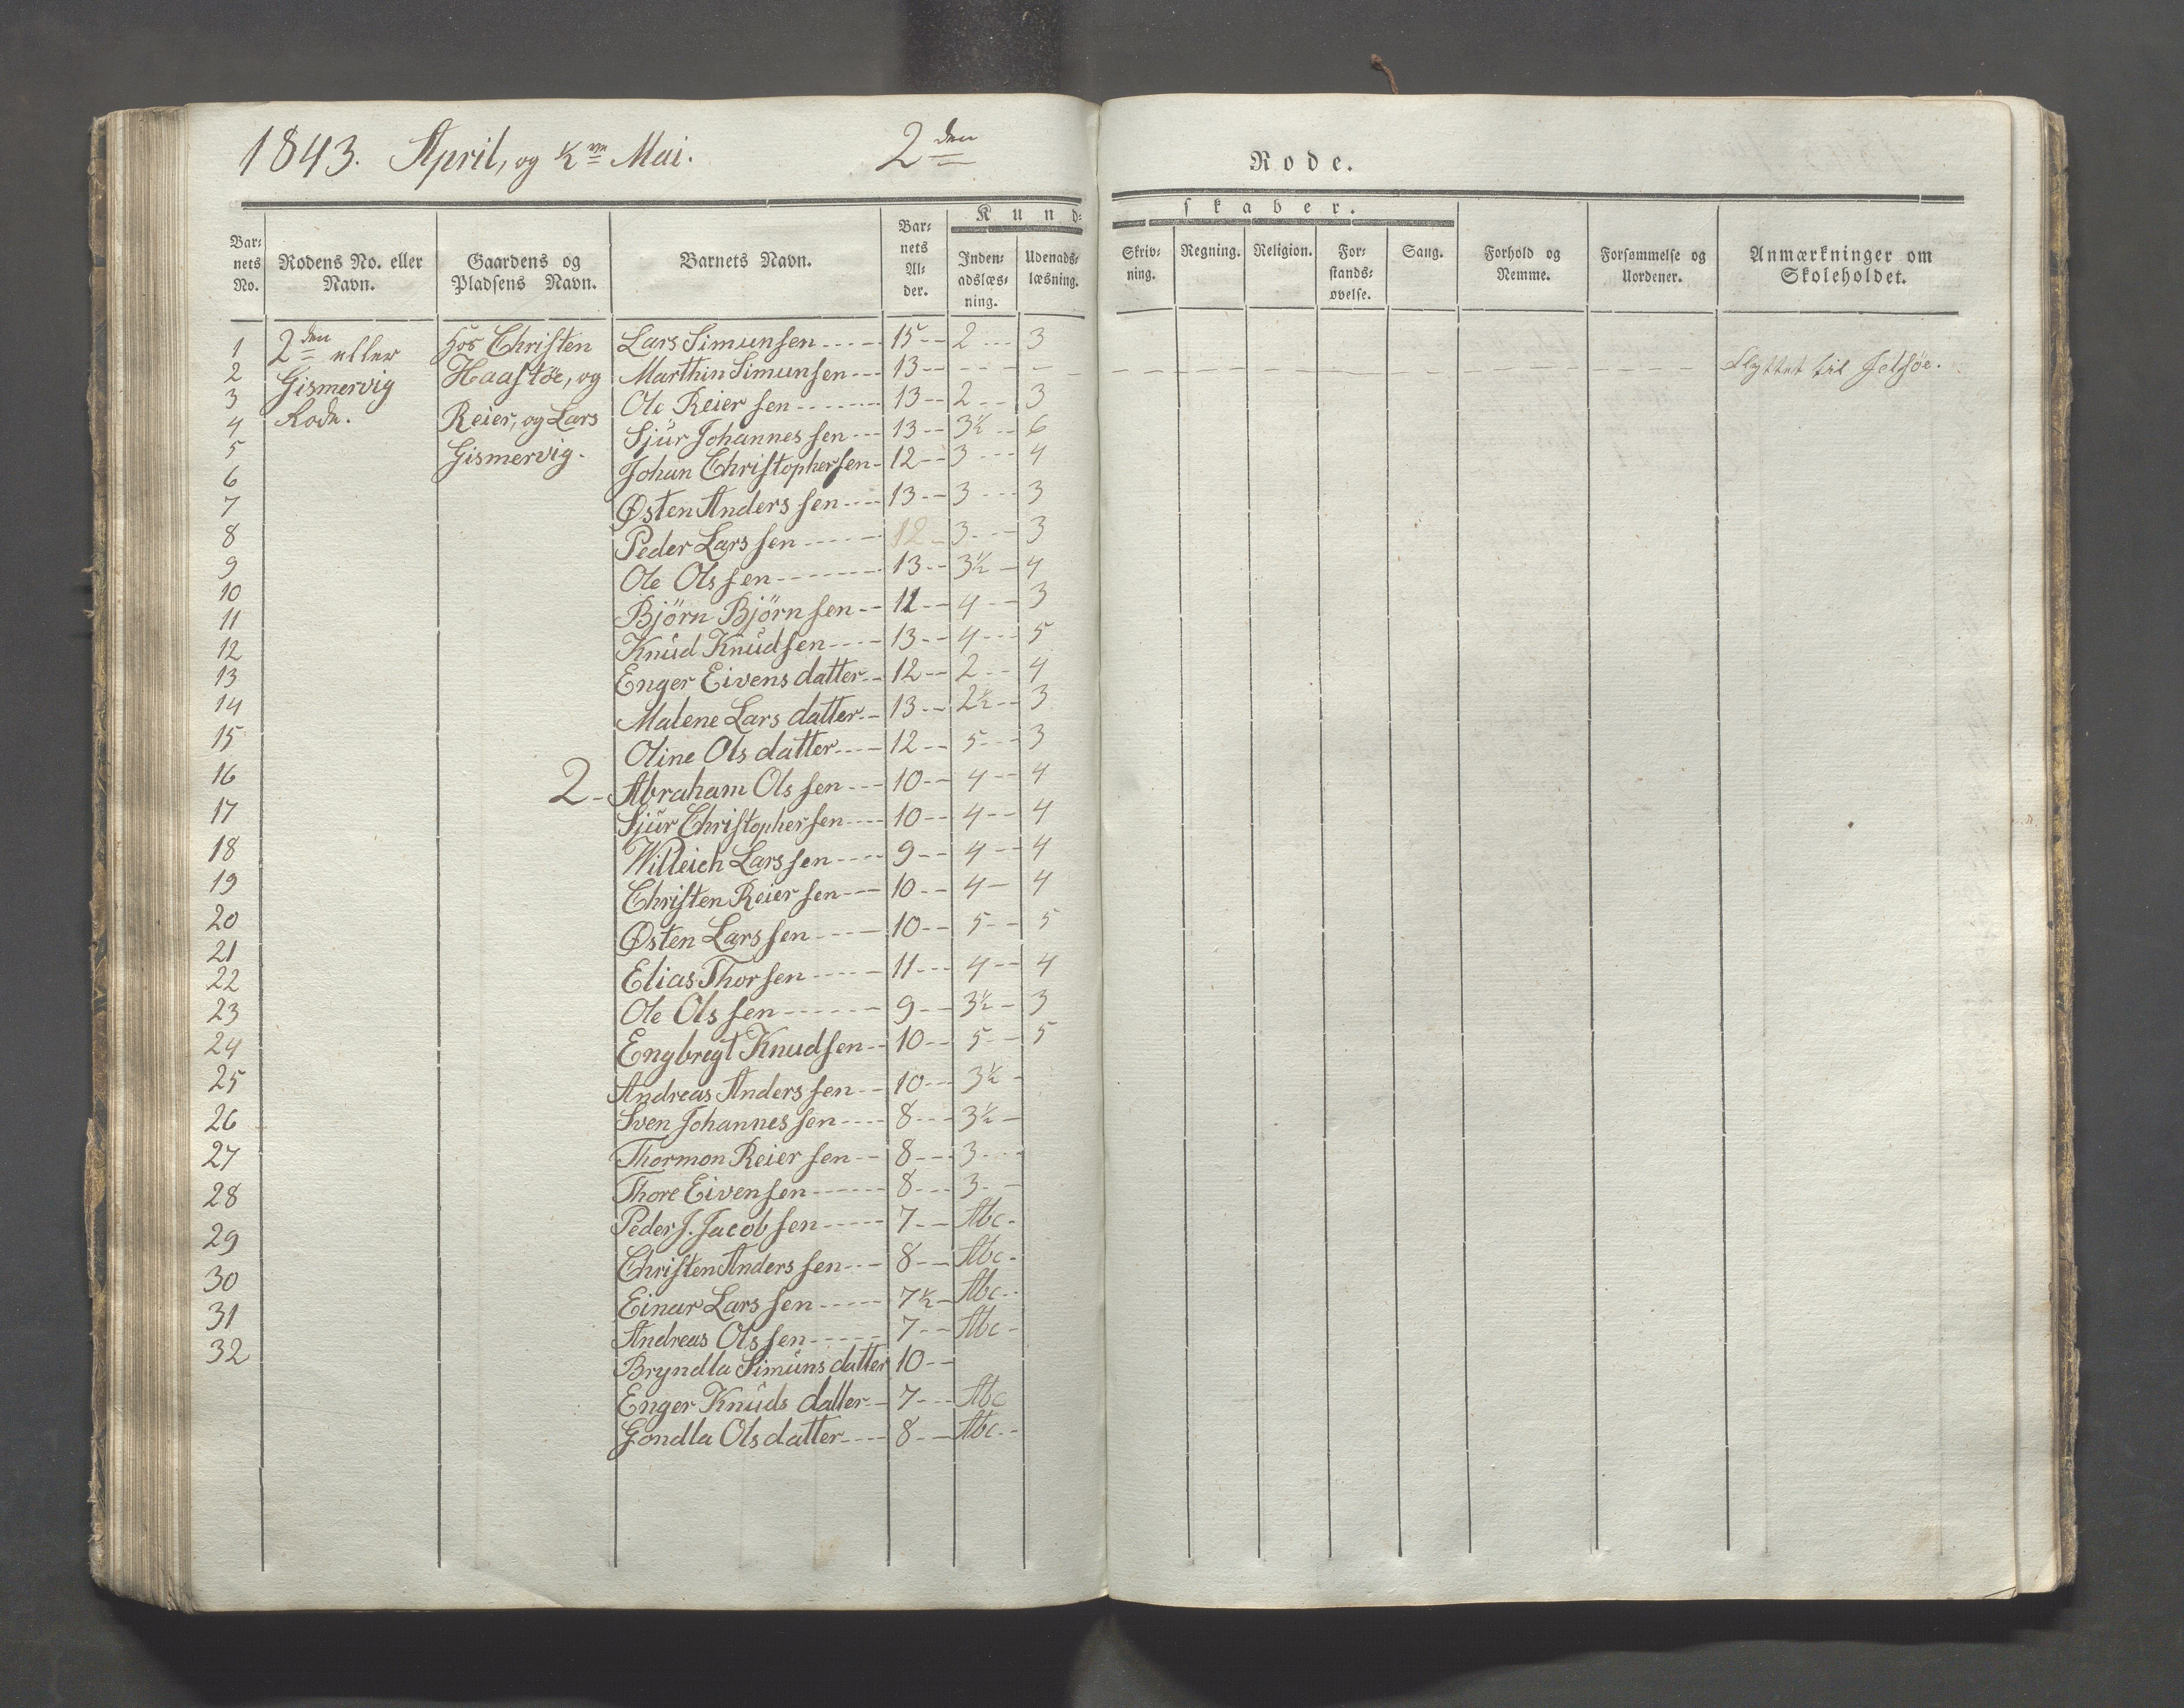 1843. April, og ½ Mai. 2den Rode.
Kundskaber.
Barnets No. Rodens No. eller Navn. Gaardens og Pladsens Navn. Barnets Navn. Barnets Alder. Indenadslæsning. Udenadslæsning. Skrivning. Regning. Religion. Forstandsøvelse. Sang. Forhold og Nemme. Forsømmelse og Uordener. Anmærkninger om Skoleholdet.
1 2den eller hos Christen Lars Simunsen 15 2 3
2 Gismervig Haastöe, og Marthin Simunsen 13 Flyttet til
3 Rode. Reier, og Lars Ole Reiersen 13 2 3
4 Gismervig. Sjür Johannessen 13 3½ 6
5 Johan Christophersen 12 3 4
6 Østen Anderssen 13 3 3
7 Peder Larssen 12 3 3
8 Ole Olssen 13 3½ 4
9 Björn Björnsen 11 4 3
10 Knüd Knüdsen 13 4 5
11 Enger Eivensdatter 12 2 4
12 Malene Larsdatter 13 2½ 3
13 Oline Olsdatter 12 5 3
14 2 Abraham Olssen 10 4 4
15 Sjür Christophersen 10 4 4
16 Willeich Larssen 9 4 4
17 Christen Reiersen 10 4 4
18 Østen Larssen 10 5 5
19 Elias Thorsen 11 4 4
20 Ole Olssen 9 3½ 3
21 Engbregt Knudsen 10 5 5
22 Andreas Anderssen 10 3½
23 Sven Johannessen 8 3½
24 Thormon Reiersen 8 3
25 Thore Eivensen 8 3
26 Peder J. Jacobsen 7 Abc
27 Christen Anderssen 8 Abc
28 Einar Larssen 7½ Abc
29 Andreas Olssen 7 Abc
30 Bryndla Simünsdatter 10
31 Enger Knüdsdatter 7 Abc
32 Gondla Olsdatter 8 Abc